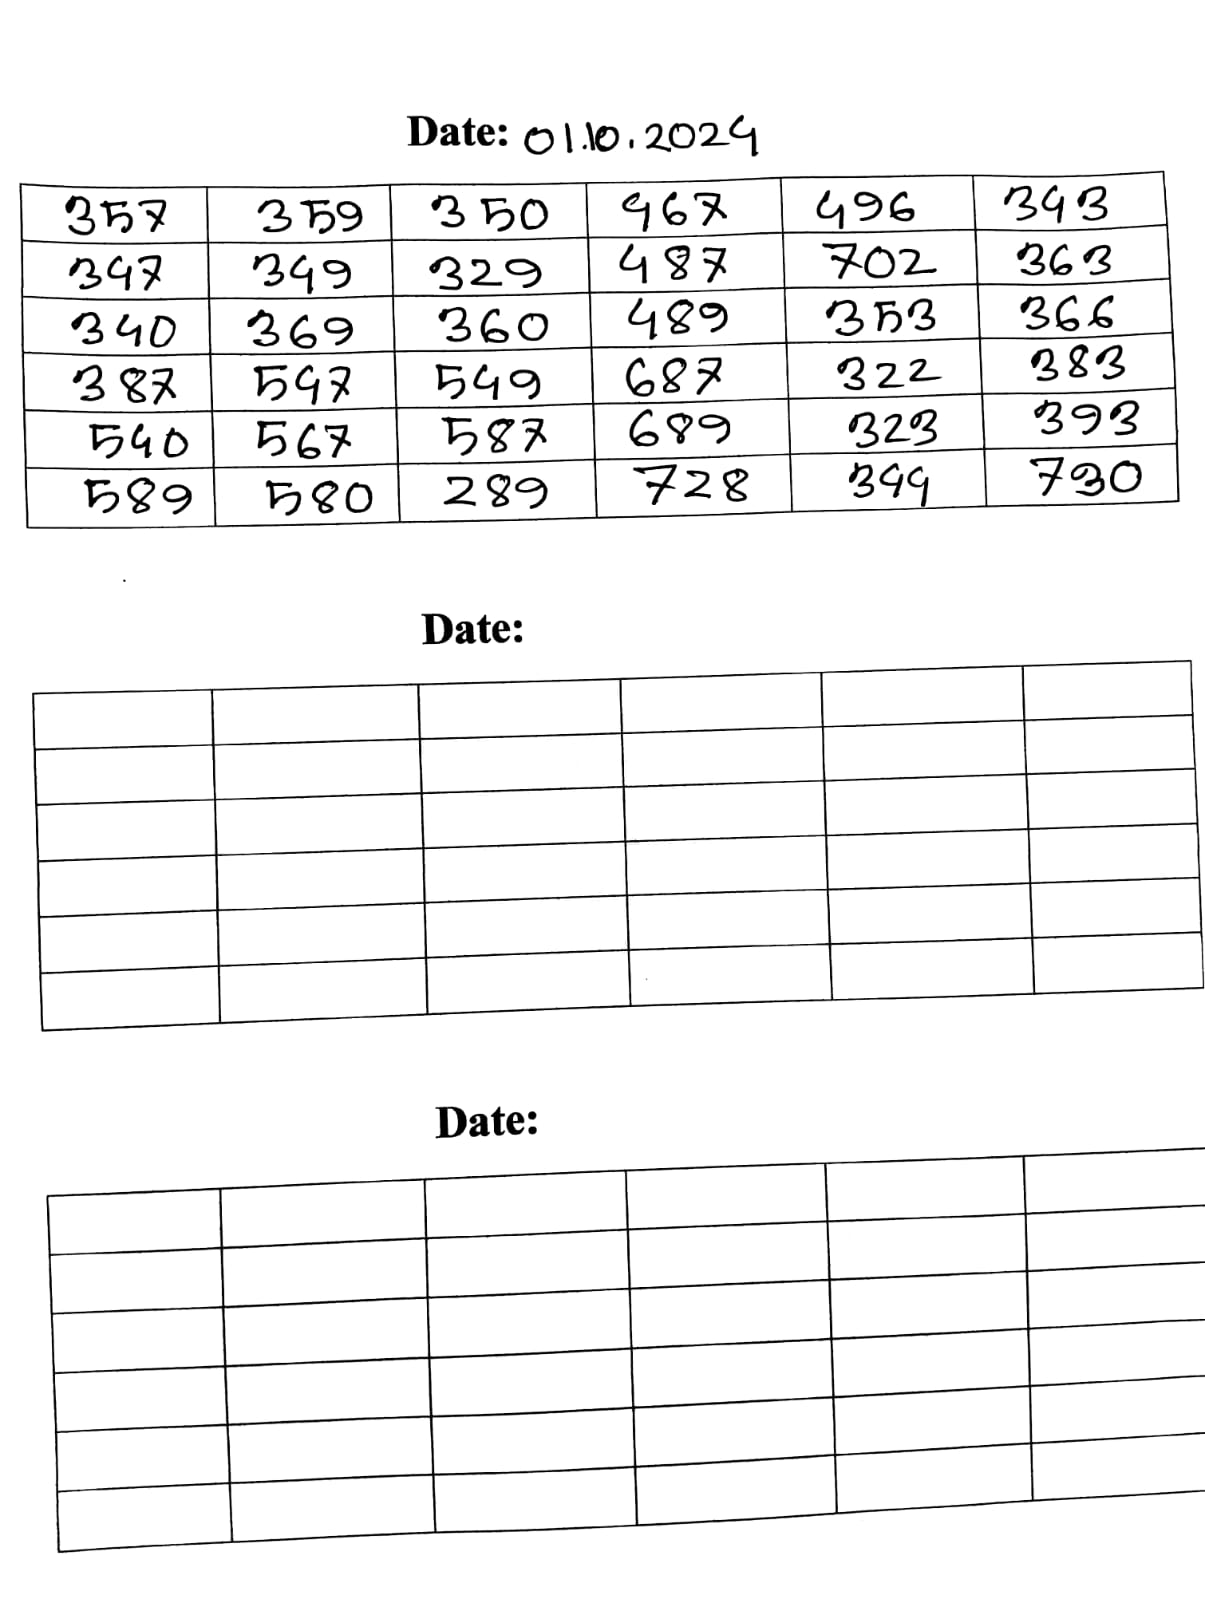 Date: 01.10.2024
357 359 350 467 496 343
347 349 329 487 702 363
340 369 360 489 353 366
387 547 549 687 322 383
540 567 587 689 323 393
589 580 289 728 344 730
Date:
Date: